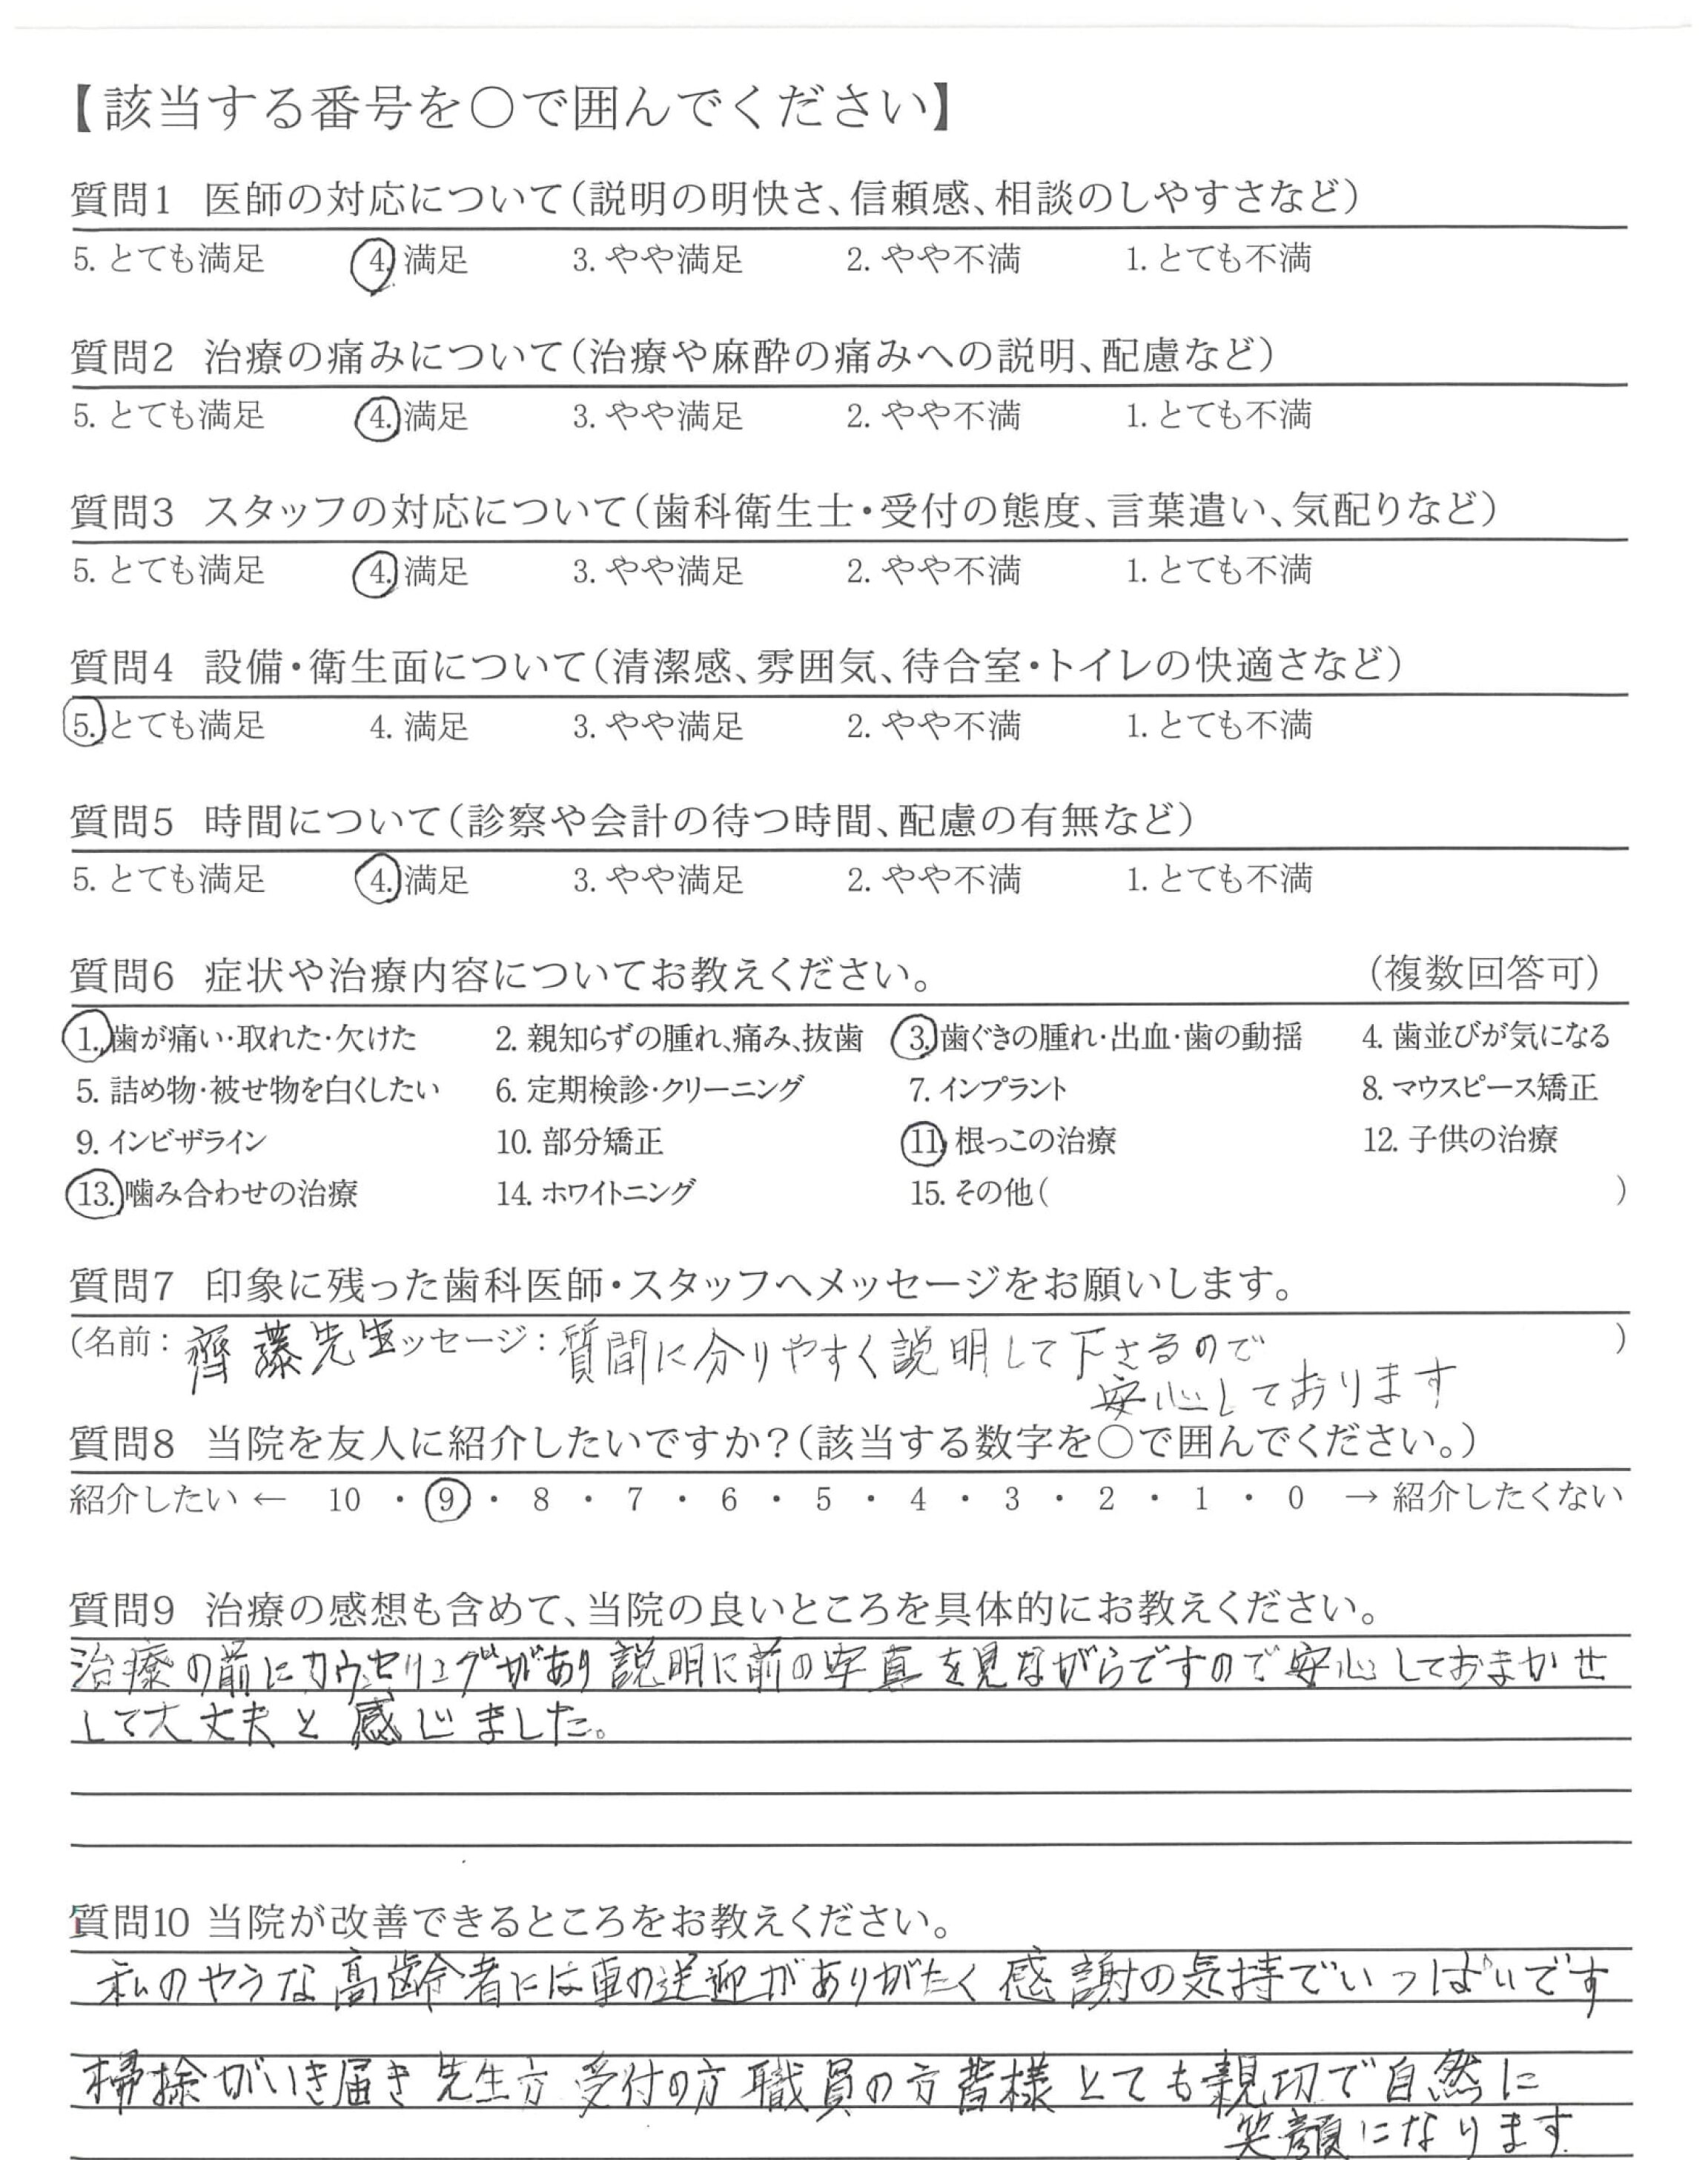 【該当する番号を○で囲んでください】
質問1 医師の対応について(説明の明快さ、信頼感、相談のしやすさなど)
5. とても満足 4. 満足 3. やや満足 2. やや不満 1. とても不満
質問2 治療の痛みについて(治療や麻酔の痛みへの説明、配慮など)
5. とても満足 4. 満足 3. やや満足 2. やや不満 1. とても不満
質問3 スタッフの対応について(歯科衛生士・受付の態度、言葉遣い、気配りなど)
5. とても満足 4. 満足 3. やや満足 2. やや不満 1. とても不満
質問4 設備・衛生面について(清潔感、雰囲気、待合室・トイレの快適さなど)
5. とても満足 4. 満足 3. やや満足 2. やや不満 1. とても不満
質問5 時間について(診察や会計の待つ時間、配慮の有無など)
5. とても満足 4. 満足 3. やや満足 2. やや不満 1. とても不満
質問6 症状や治療内容についてお教えください。 (複数回答可)
1. 歯が痛い・取れた・欠けた 2. 親知らずの腫れ、痛み、抜歯 3. 歯ぐきの腫れ・出血・歯の動揺 4. 歯並びが気になる
5. 詰め物・被せ物を白くしたい 6. 定期検診・クリーニング 7. インプラント 8. マウスピース矯正
9. インビザライン 10. 部分矯正 11. 根っこの治療 12. 子供の治療
13. 噛み合わせの治療 14. ホワイトニング 15. その他( )
質問7 印象に残った歯科医師・スタッフへメッセージをお願いします。
(名前: 齊藤先生ッセージ: 質問に分りやすく説明して下さるので )
安心しております
質問8 当院を友人に紹介したいですか?(該当する数字を○で囲んでください。)
紹介したい ← 10 ・ 9 ・ 8 ・ 7 ・ 6 ・ 5 ・ 4 ・ 3 ・ 2 ・ 1 ・ 0 → 紹介したくない
質問9 治療の感想も含めて、当院の良いところを具体的にお教えください。
治療の前にカウセリングがあり説明に前の写真を見ながらですので安心しておまかせ
して大丈夫と感じました。
質問10 当院が改善できるところをお教えください。
私のやうな高齢者には車の送迎がありがたく感謝の気持でいっぱいです
掃除がいき届き先生方受付の方職員の方皆様とても親切で自然に
笑顔になります